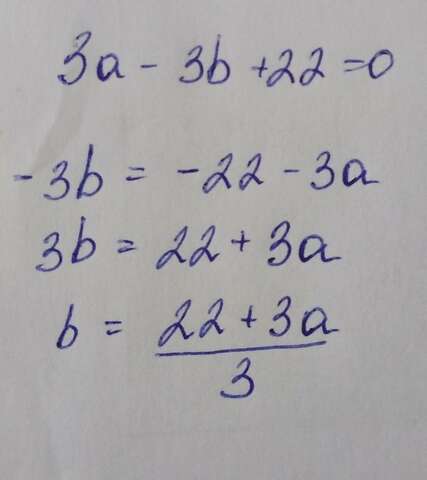 3a - 3b + 22 = 0
- 3b = - 22 - 3a
3b = 22 + 3a
b = 22 + 3a
3